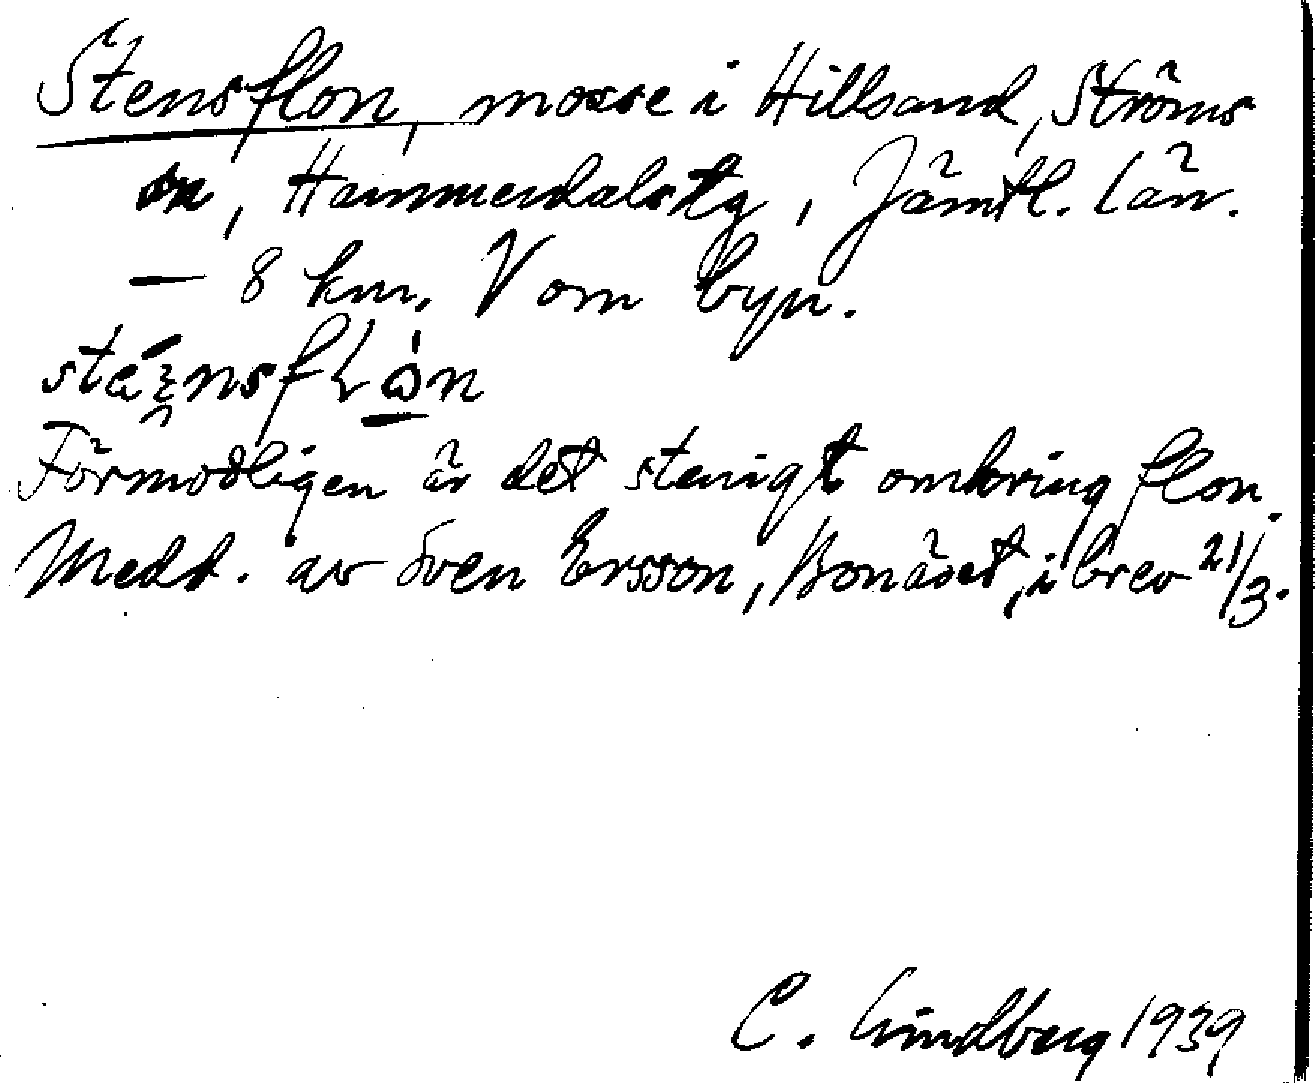 Stensflon, mosse i Hillsand, Ströms
sn, Hammerdals tg, Jämtl. län.
— 8 km. V om byn.
Förmodligen är det stenigt omkring flon.
Medd. av Sven Ersson, Bonäset, i brev 21/3.
C. Lindberg 1939